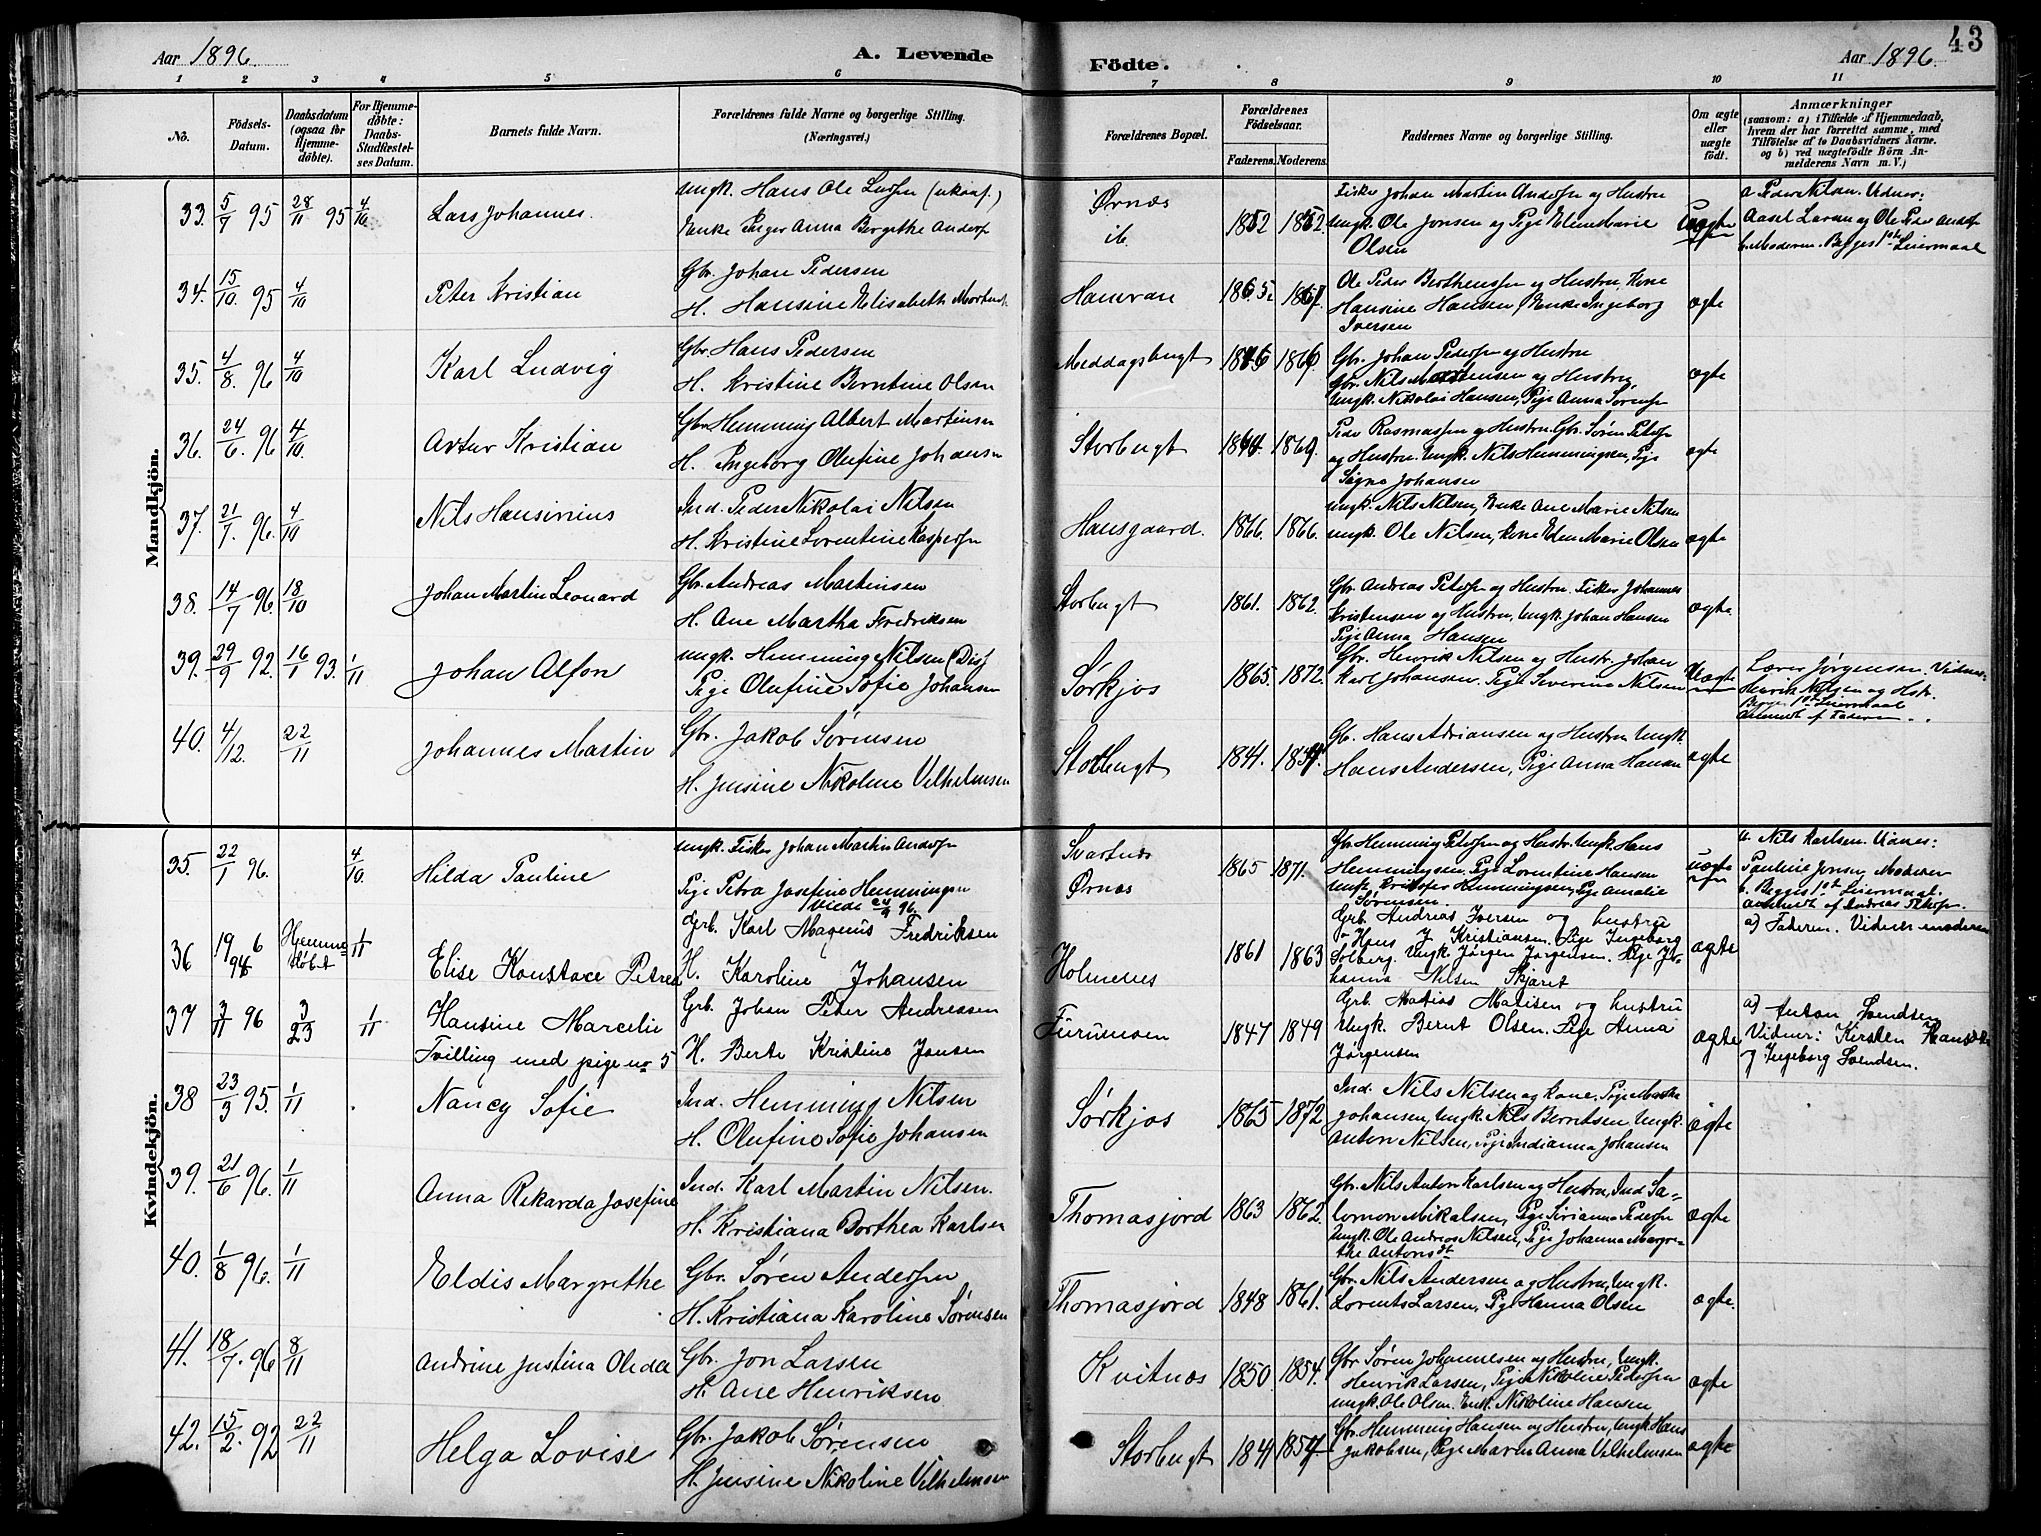 43
Aar 1896. A. Levende Födte. Aar 1896.
1 2 3 4 5 6 7 8 9 10 11
No. Födsels-Datum. Daabsdatum (ogsaa for Hjemmedöbte). For Hjemmedöbte: Daabs-Stadfæstelses Datum. Barnets fulde Navn. Forældrenes fulde Navne og borgerlige Stilling. (Næringsvei.) Forældrenes Bopæl. Forældrenes Födselsaar. Faderens. Moderens. Faddernes Navne og borgerlige Stilling. Om ægte eller uægte födt. Anmærkninger (saasom: a) i Tilfælde af Hjemmedaab, hvem der har forrettet samme, med Tilföielse af to Daabsvidners Navne, og b) ved uægtefödte Börn Anmelderens Navn m. V.)
Mandkjön.
33. 5/7 95 28/11 95 4/10 Lars Johannes. Ungk. Hans Ole
Enke Inger Anna Bergithe Anders
Ørnæs
ib. 1852 1852.
Fisker Johan Martin Anders og Hustru
Ungk. Ole Jonsen og Pige Eline Marie
Olsen
Uægte
a Peder Nilsen. Vidner:
Aasel Larsen og Ole Peder
b. Moderen. Begges 1ste Leiermaal
34. 15/10. 95 4/10 Peter Kristian Gbr. Johan Pedersen
H. Hansine Elisabeth
Hamvan 1865. 1867.
Ole Peder og Hustru, Kone
Hansine Hansen, Enke Ingeborg
Iversen
ægte
35. 4/8. 96 4/10 Karl Ludvig Gbr. Hans Pedersen
H. Kristine Berntine Olsen
Meddagsbugt 1866.
Gbr. Johan Peders og Hustru
Gbr. Nils Mortensen og Hustru,
Ungk. Nikolai Hansen, Pige Anna Sørens
ægte
36. 24/6. 96 4/10. Artur Kristian Gbr. Hemming Albert Martinsen
H. Ingeborg Olufine Johansen
Storbugt 1869.
Peder Rasmussen og Hustru. Gbr. Søren Peters
og Hustru. Ungk. Nils Hemmingsen, Pige
Signe Johansen
ægte
37. 21/7. 96. 4/10 Nils Hansinius Ind. Peder Nikolai Nilsen
H. Kristine Lorentine Kaspers
Hansgaard. 1866. 1866.
Ungk. Nils Nilsen, Enke Ane Marie Nilsen
Ungk. Ole Nilsen, Kone Elen Marie Olsen
ægte
38. 14/7 96. 18/10 Johan Martin Leonard Gbr. Andreas Martinsen
H. Ane Martha Fredriksen
Storbugt 1861. 1862.
Gbr. Andreas Peters og Hustru. Fisker Johannes
Kristensen og Hustru, Ungk. Johan Hansen
Pige Anna Hansen
ægte
39. 29/9 92. 16/1 93. 1/11 Johan Alfon Ungk. Hemming Nilsen (Dis)
Pige Olufine Sofie Johansen
Sørkjos 1865. 1872.
Gbr. Henrik Nilsen og Hustr. Johan
Karl Johansen. Pige Severine Nilsen
Uægte
Lærer Jørgensen. Vidner:
Henrik Nilsen og Hstr.
Begges 1st Leiermaal
Anmeldt af Faderen.
40. 4/12. 22/11 Johannes Martin Gbr. Jakob Sørensen
H. Jensine Nikoline Vilhelmsen
Storbugt 1841. 1854.
Gb. Hans Adriansen og Hustru Ungk.
Hans Andersen, Pige Anna Hansen
ægte
Kvindekjön.
35. 22/1 96. 4/10. Hilda Pauline Ungk. Fisker Johan Martin Anders
Pige Petra Josefine Hemmingsen
Svartnes
Ørnæs 1865 1871.
Gbr. Hemming Peters og Hustr. Ungk. Hans
Hemmingsen, Pige Lorentine Hansen
Ungk. Kristofer Hemmingsen, Pige Amalie
Sørensen.
uægte
a. Nils Karlsen. Vidnes:
Pauline Jensen, Moderen
b. Begges 1st Leiermaal.
anmeldt af Andreas Peters.
36 19/6 94 Hjemmedøbt 1/11 Elise Konstace Petrea Grb. Karl Magnus Fredriksen
H. Karoline Johansen
Holmenes 1861 1863
Grb. Andreas Iversen og hustru
Hans J Kristiansen. Pige Ingeborg
Solberg. Ungk. Jørgen Jørgensen. Pige Johanna Nilsen Skjæret
ægte
a) Faderen. Vidner moderen
37 3/11 96 3/23 1/11 Hansine Marcelie
Tvilling med pige no 5
Grb. Johan Peter Andreasen
H. Berte Kristine Jensen
Furumoen 1847 1849
Grb. Matias Matisen og hustru
Ungk. Bernt Olsen. Pige Anna
Jørgensen
ægte
a) Anton Svendsen
Vidner: Kirsten
og Ingeborg Svendsen.
38 23/3 95. 1/11 Nancy Sofie Ind. Hemming Nilsen
H. Olufine Sofie Johansen
Sørkjos 1865 1872
Ind. Nils Nilsen og Kone. Pige
Johansen, Ungk. Nils Berntsen, Ungk.
Anton Nilsen, Pige Indianna Johansen
ægte
39. 21/6 96. 1/11 Anna Rikarda Josefine Ind. Karl Martin Nilsen.
H. Kristiana Dorthea Karlsen
Thomasjord 1863 1862.
Gbr. Nils Anton Karlsen og Hustru, Ind Salomon Mikalsen, Pige Sirianna Peders
Ungk. Ole Andreas Nilsen, Pige Johanna Margrethe Antonsdt
ægte
40. 1/8 96. 1/11 Eldis Margrethe Gbr. Søren Anders
H. Kristiana Karoline Sørensen
Thomasjord 1848 1861.
Gbr. Nils Andersen og Hustru, Ungk.
Lorents Larsen, Pige Hanna Olsen
ægte.
41. 18/7. 96 8/11 Andrine Justina Oleda Gbr. Jon Larsen
H. Ane Henriksen
Kvitnæs 1850. 1854.
Gbr Søren Johannesen og Hustru, Ungk.
Henrik Larsen, Pige Nikoline Peders
Ungk. Ole Olsen. Enk. Nikoline Hansen
ægte
42. 15/2. 92 22/11 Helga Lovise Gbr. Jakob Sørensen
H. Jensine Nikoline Vilhelmsen
Storbugt 1841 1854
Gbr. Hemming Hansen og Hustru, Ungk Hans
Jakobsen, Pige Maren Anna Vilhelmsen
ægte